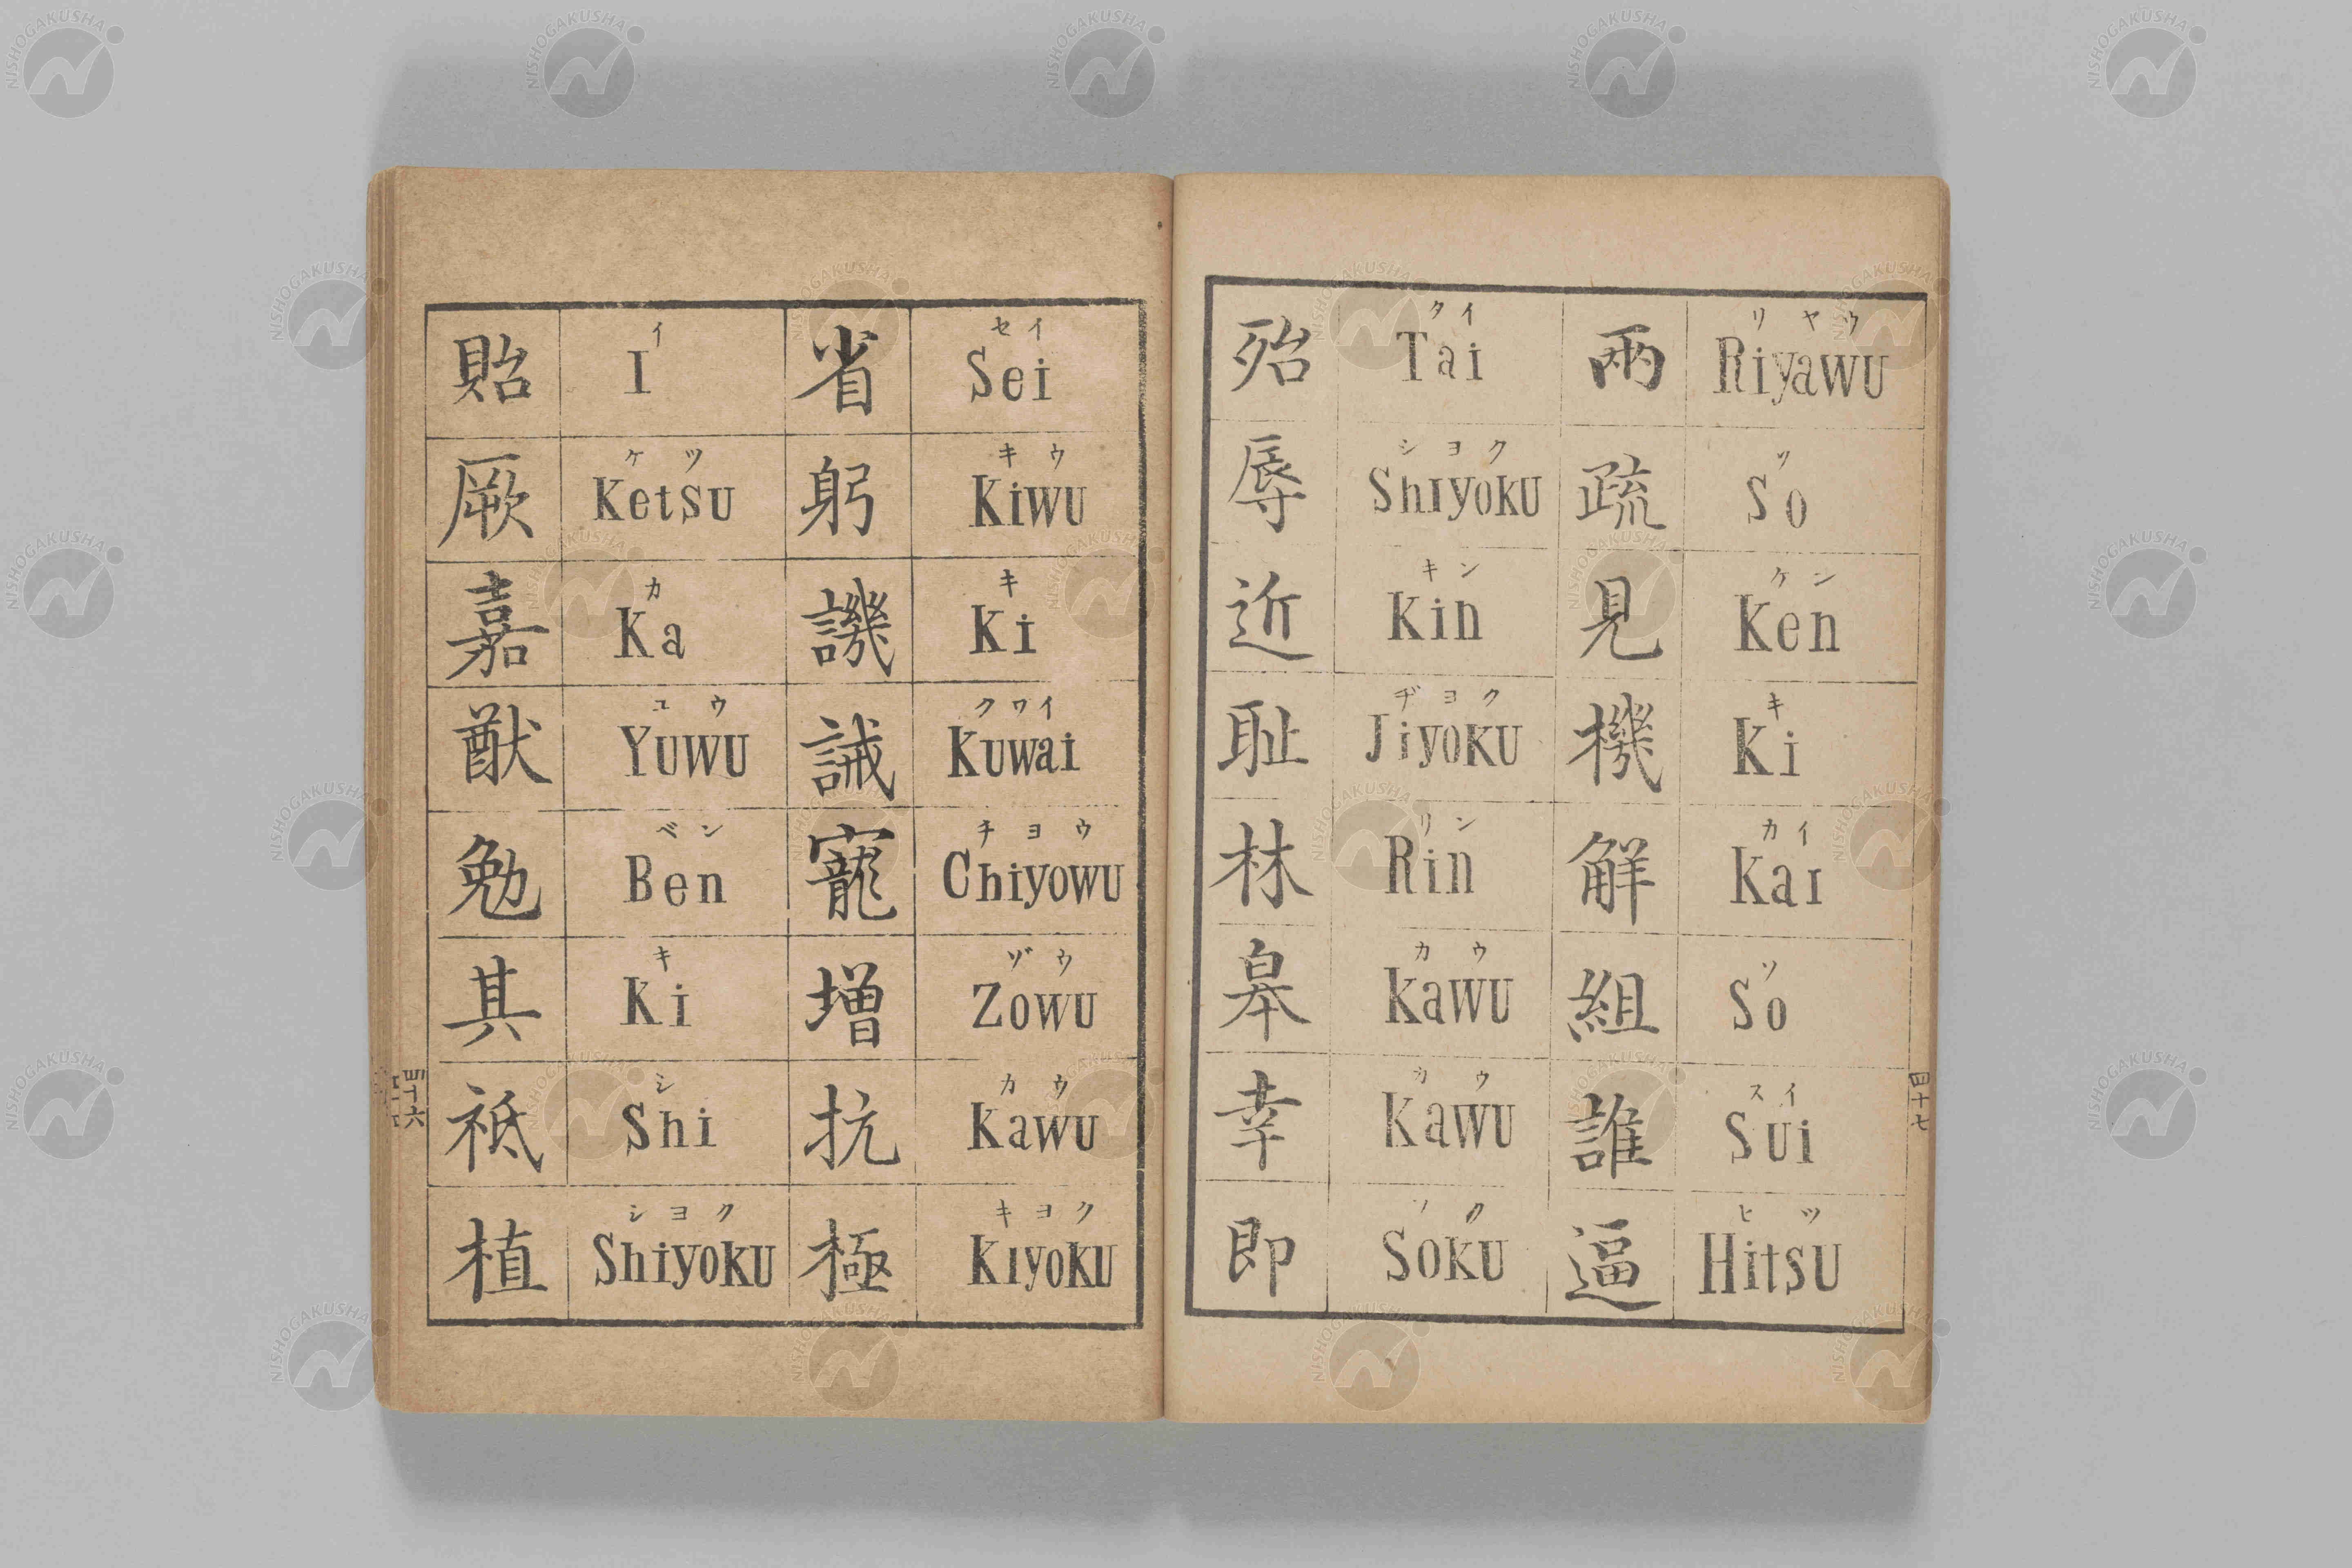 貽 イ I
厥 ケツ Ketsu
嘉 カ Ka
猷 ユウ Yuwu
勉 ベン Ben
其 キ Ki
祗 シ Shi
植 シヨク Shiyoku
省 セイ Sei
躬 キウ Kiwu
譏 キ Ki
誡 クワイ Kuwai
寵 チヨウ Chiyowu
増 ゾウ Zowu
抗 カウ Kawu
極 キヨク Kiyoku
四十六
殆 タイ Tai
辱 シヨク Shiyoku
近 キン Kin
耻 ヂヨク Jiyoku
林 リン Rin
皋 カウ Kawu
幸 カウ Kawu
即 ソク Soku
兩 リヤウ Riyawu
疏 ソ So
見 ケン Ken
機 キ Ki
觧 カイ Kai
組 ソ So
誰 スイ Sui
逼 ヒツ Hitsu
四十七
NISHOGAKUSHA